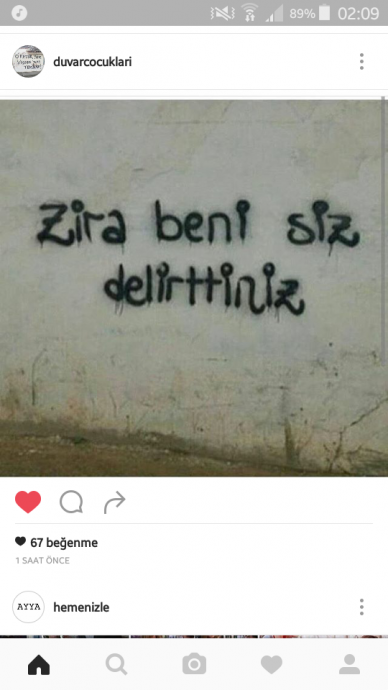 89% 02:09
duvarcocuklari
Zira beni siz
delirttiniz
67 beğenme
1 SAAT ÖNCE
AYYA hemenizle